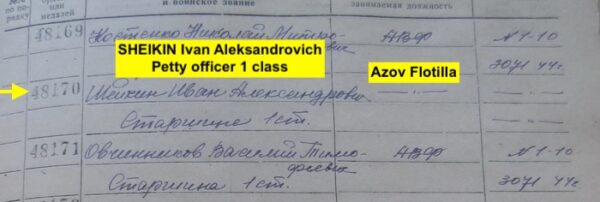 по по-
рядку
или
медалей
и воинское звание
занимаемая должность
48169 Костенко Николай Митро-
фанович АВФ N 1-10
SHEIKIN Ivan Aleksandrovich
Petty officer 1 class
3071 44 г.
Azov Flotilla
48170 Шейкин Иван Александрович —"— —"—
Старшина 1 ст. —"—
48171 Овчинников Василий Тимо- АВФ N 1-10
феевич
Старшина 1 ст. 3071 44 г.